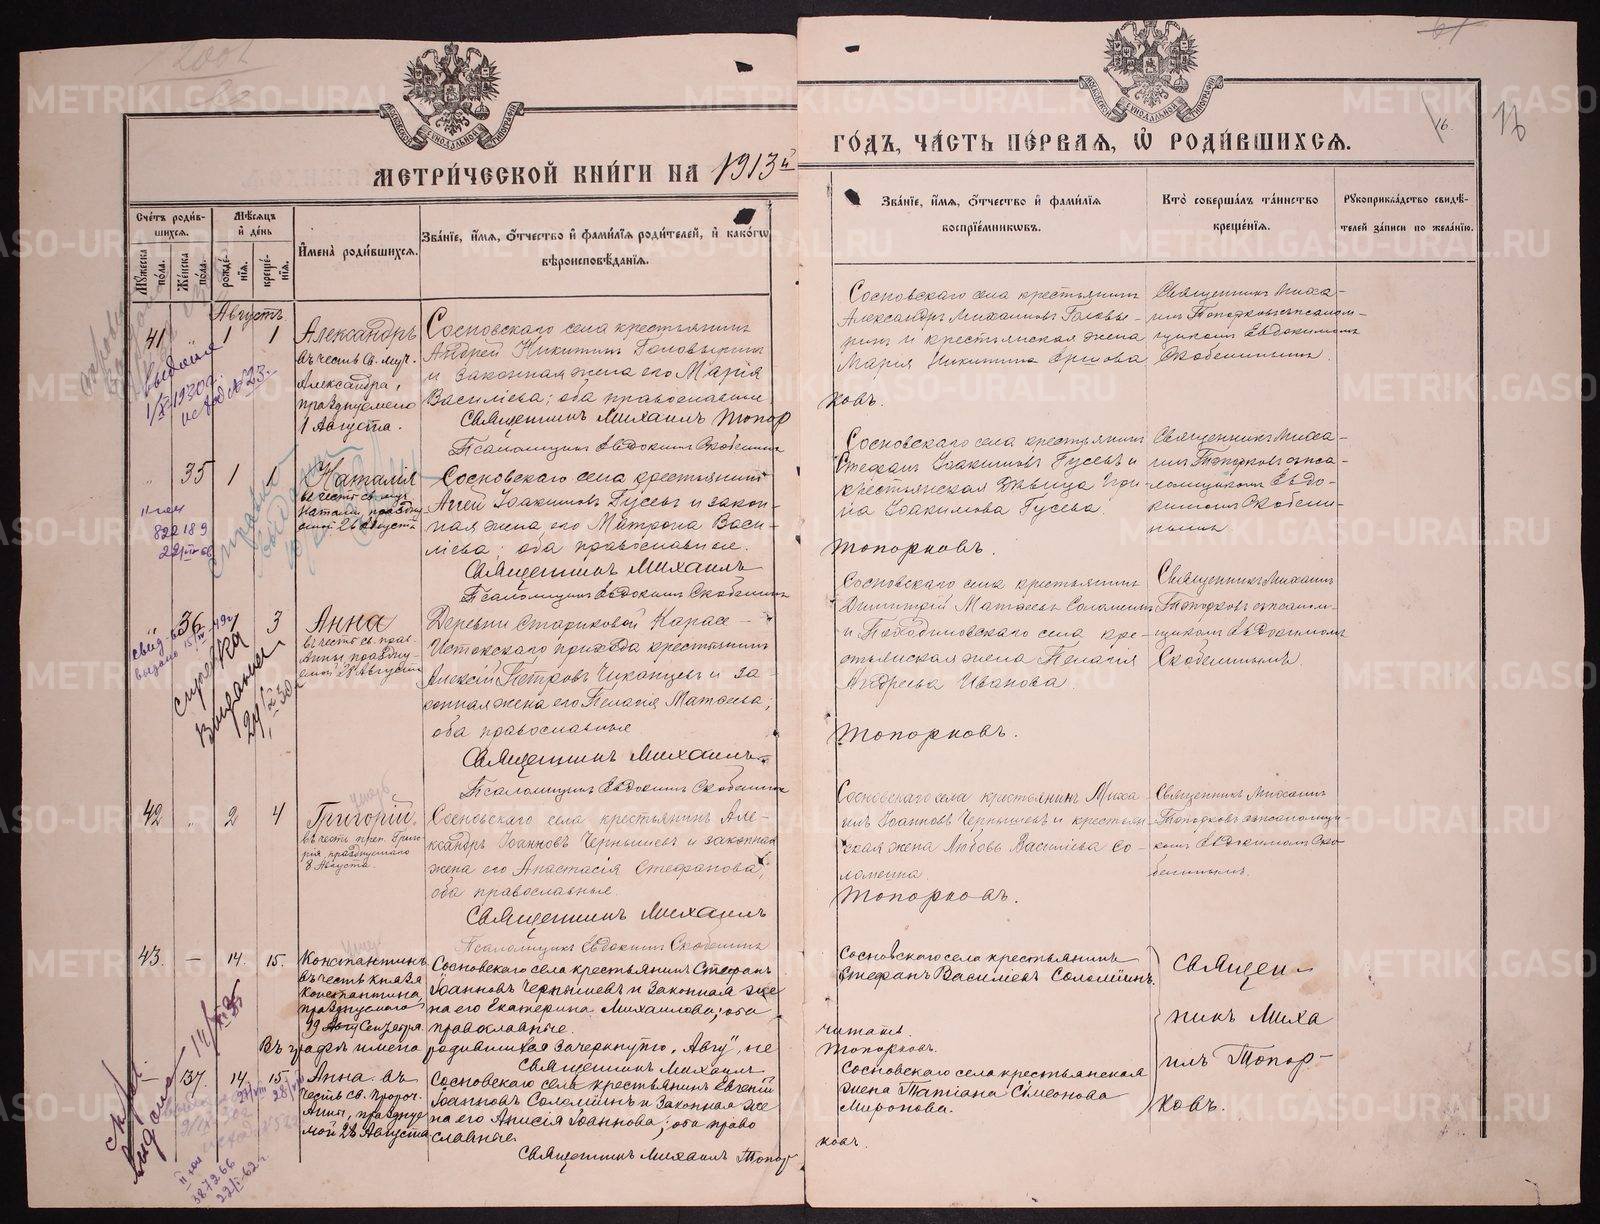 МЕТРИ́ЧЕСКОЙ КНИ́ГИ НА 1913й
ГО́ДЪ, ЧА́СТЬ ПЕ́РВАЯ, Ѽ РОДИ́ВШИХСЯ.
16.
Сче́тъ роди́в-
шихся.
Мꙋ́жеска по́ла.
Же́нска по́ла.
Мѣ́сяцъ
и҆ де́нь
рожде́-
нїя.
креще́-
нїя.
И҆мена̀ роди́вшихся.
Зва́нїе, и҆́мя, ѻ҆́тчество и҆ фами́лїя роди́телей, и҆ како́гѡ
вѣроисповѣ́данїя.
Зва́нїе, и҆́мя, ѻ҆́тчество и҆ фами́лїя
воспрїе́мникѡвъ.
Кто̀ соверша́лъ та́инство
креще́нїя.
Рꙋкоприкла́дство свидѣ́-
телей за́писи по жела́нїю.
Августъ
41 " 1 1
Александръ
въ честь Св. муч.
Александра,
празднуемаго
1 Августа.
Сосновскаго села крестьянинъ
Андрей Никитинъ Головыринъ
и законная жена его Марія
Василіева; оба православные
Священникъ Михаилъ Топор
ковъ.
Псаломщикъ Евдокимъ Скобелинъ
Сосновскаго села крестьянинъ
Александръ Михаиловъ Головы-
ринъ и крестьянская жена
Мария Никитина Ершова
Священникъ Миха-
илъ Топорковъ съ псалом-
щикомъ Евдокимомъ
Скобелинымъ.
" 35 1 1
Наталія
въ честь св. муч.
Наталіи, праздну
емой 26 Августа
Сосновскаго села крестьянинъ
Агей Іоакимовъ Гусевъ и закон-
ная жена его Матрона Васи-
ліева; оба православные.
Священникъ Михаилъ
Топорковъ.
Псаломщикъ Евдокимъ Скобелинъ
Сосновскаго села крестьянинъ
Стефанъ Іоакимовъ Гусевъ и
крестьянская дѣвица Ири-
на Іоакимова Гусева.
Священникъ Миха-
илъ Топорковъ съ пса-
ломщикомъ Евдо-
кимомъ Скобели-
нымъ
" 36 3
Анна
въ честь св. прав.
Анны, праздну-
емой 28 Августа
Деревни Стариковой Карась-
Истокскаго прихода крестьянинъ
Алексій Петровъ Чиканцевъ и за-
конная жена его Пелагія Матѳеева;
оба православные
Священникъ Михаилъ
Топорковъ.
Псаломщикъ Евдокимъ Скобелинъ
Сосновскаго села крестьянинъ
Димитрій Матѳеевъ Соломеинъ
и Походиловскаго села кре-
стьянская жена Пелагія
Андреева Иванова.
Священникъ Михаилъ
Топорковъ съ псалом-
щикомъ Евдокимомъ
Скобелинымъ
42 " 2 4
Григорій.
въ честь преп. Григо-
рія, празднуемаго
8 Августа
Сосновскаго села крестьянинъ Але-
ксандръ Іоанновъ Чернышевъ и законная
жена его Анастасія Стефанова;
оба православные.
Священникъ Михаилъ
Топорковъ.
Псаломщикъ Евдокимъ Скобелинъ
Сосновскаго села крестьянинъ Миха
илъ Іоанновъ Чернышевъ и крестьян-
ская жена Любовь Василіева Со-
ломеина.
Священникъ Михаилъ
Топорковъ съ псаломщи-
комъ Евдокимомъ Ско-
белинымъ.
43. — 14. 15.
Константинъ
въ честь князя
Константина,
празднуемаго
19 Авгу Сентября.
Сосновскаго села крестьянинъ Стефанъ
Іоанновъ Чернышевъ и законная же
на его Екатерина Михаилова; оба
православные.
Въ графѣ имена родившихся зачеркнуто „Авгу", не
читать.
Священникъ Михаилъ
Топорковъ.
Сосновскаго села крестьянинъ
Стефанъ Василіевъ Соломеинъ.
Священ-
никъ Миха
илъ Топор-
ковъ.
37. 14. 15.
Анна въ
честь св. пророч.
Анны, празднуе
мой 28 Августа
Сосновскаго села крестьянинъ Евгеній
Іоанновъ Соломеинъ и законная же
на его Анисія Іоаннова; оба право
славные.
Священникъ Михаилъ Топор
ковъ.
Сосновскаго села крестьянская
жена Татіана Симеонова
Миронова.
Справка
выдана
II пол
387266
METRIKI.GASO-URAL.RU